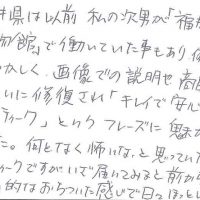 井県は以前 私の次男が「福
物館」で働いていた事もあり
かしく、画像での説明や商
いに修復され「キレイで安心
ティーク」というフレーズに魅か
た。何となく怖いな、と思ってい
ークですがいざ届いてみると前か
的なおちついた感じで日